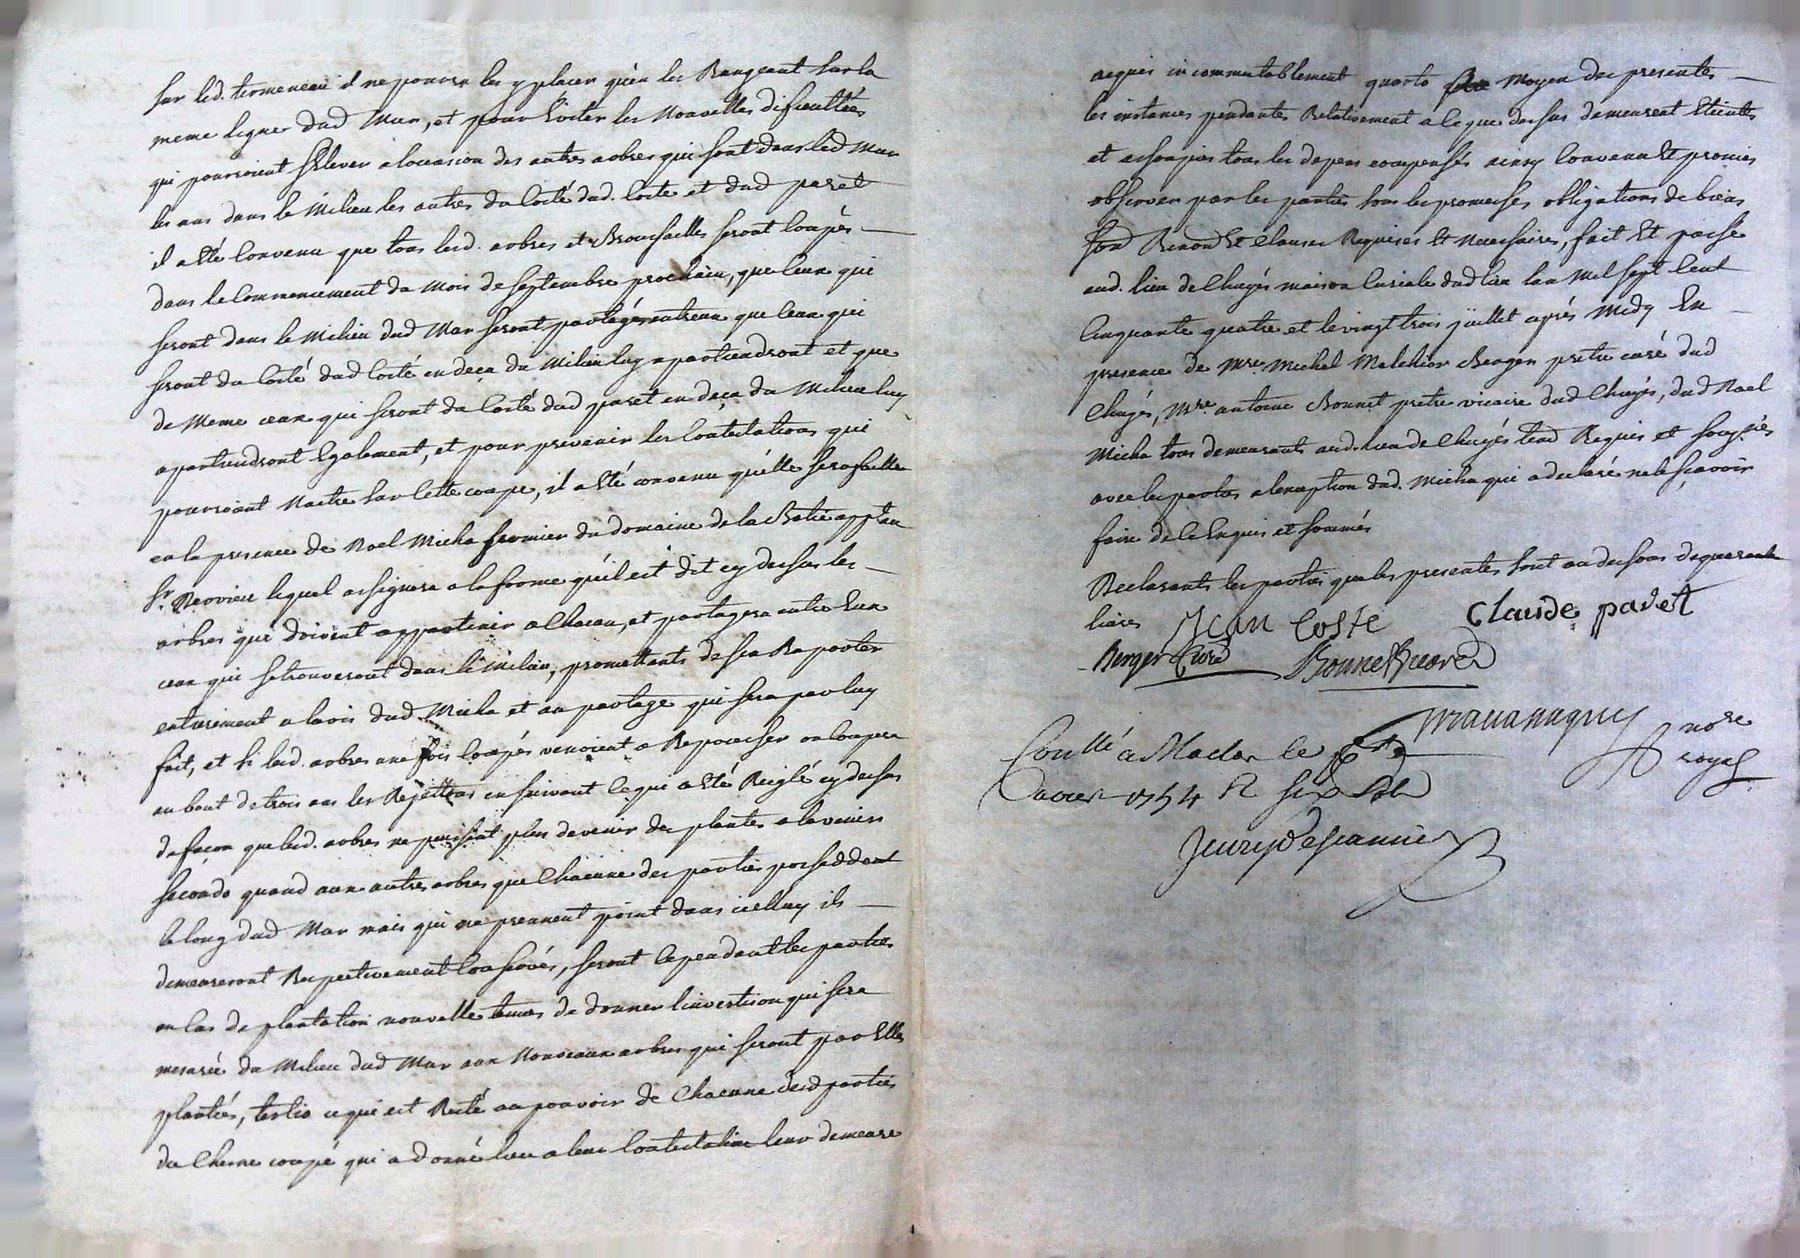 sur led. termeneau il ne pourra les y placer qu'en les Rangeant sur la
meme ligne dud Mur, et pour Eviter les Nouvelles dificultés
qui pourroient s'Elever a locasion des autres arbres qui sont dans led Mur
les uns dans le Milieu les autres du Costé dud. Coste et dud paret
il a Eté Convenu que tous lesd. arbres et Broussailles seront Coupés
dans le Commencement du mois de septembre prochain, que Ceux qui
seront dans le Milieu dud Mur seront partagés entreux que Ceux qui
seront du Costé dud Coste en deça du Milieu luy apartiendront et que
de Meme ceux qui seront du Costé dud paret en deça du Milieu luy
apartiendront Egalement, et pour prevenir les Contestations qui
pourroient Naitre sur Cette coupe, il a Eté convenu qu'elle sera faitte
en la presence de Noel Micha fermier du domaine de la Batie appt. au
Sr. lequel assignera a la forme qu'il est dit cy dessus les
arbres qui doivent appartenir a Chacun, et partagera entre Eux
ceux qui se trouveront dans le Milieu, promettants de s'en Raporter
entierement a lavis dud Micha et au partage qui sera par luy
fait, et si lesd. arbres une fois Coupés venoient a Repousser on Coupera
au bout de trois ans les Rejettons en suivant Ce qui a Eté Reiglé cy dessus
de façon que lesd. arbres ne puissent plus devenir des plantes a lavenir
secondo quand aux autres arbres que Chacune des parties possedent
le long dud Mur mais qui ne prennent point dans icelluy ils
demeureront Respectivement Conservés, seront Cependant les parties
en Cas de plantation nouvelle tenues de donner l'investison qui sera
mesurée du Milieu dud Mur aux Nouveaux arbres qui seront par Elles
plantés, tertio ce qui est Resté au pouvoir de Chacune desd parties
du Chene coupé qui a donné lieu a leur Contestation leur demeure
acquis incommutablement quarto Moyen des presentes
les instances pendantes Relativement a Ce que dessus demeurent Eteintes
et assoupies tous les depens compensés ainsy Convenu Et promis
observer par les parties sous les promesses obligations de biens
Renond Et Clauses Requises Et Necessaires, fait Et passé
aud. lieu de Chuyés maison Curiale dud lieu lan Mil sept Cent
Cinquante quatre et le vingt trois juillet après Midy En
presence de Mre. Michel Melchior Berger pretre curé dud
Chuyés, Mre. antoine Bonnet pretre vicaire dud Chuyés, dud Noel
Micha tous demeurants aud. lieu de Chuyés temd Requis et sousnés
avec les parties a lexeption dud. Micha qui a declaré ne le sçavoir
faire de Ce Enquis et sommés
Declarants les parties que les presentes sont au dessous de quarante
livres Jean Coste Claude paret
Berger Curé Bonnet
nore
royal
Conllé a Maclas le
aoust 1754 R six sols